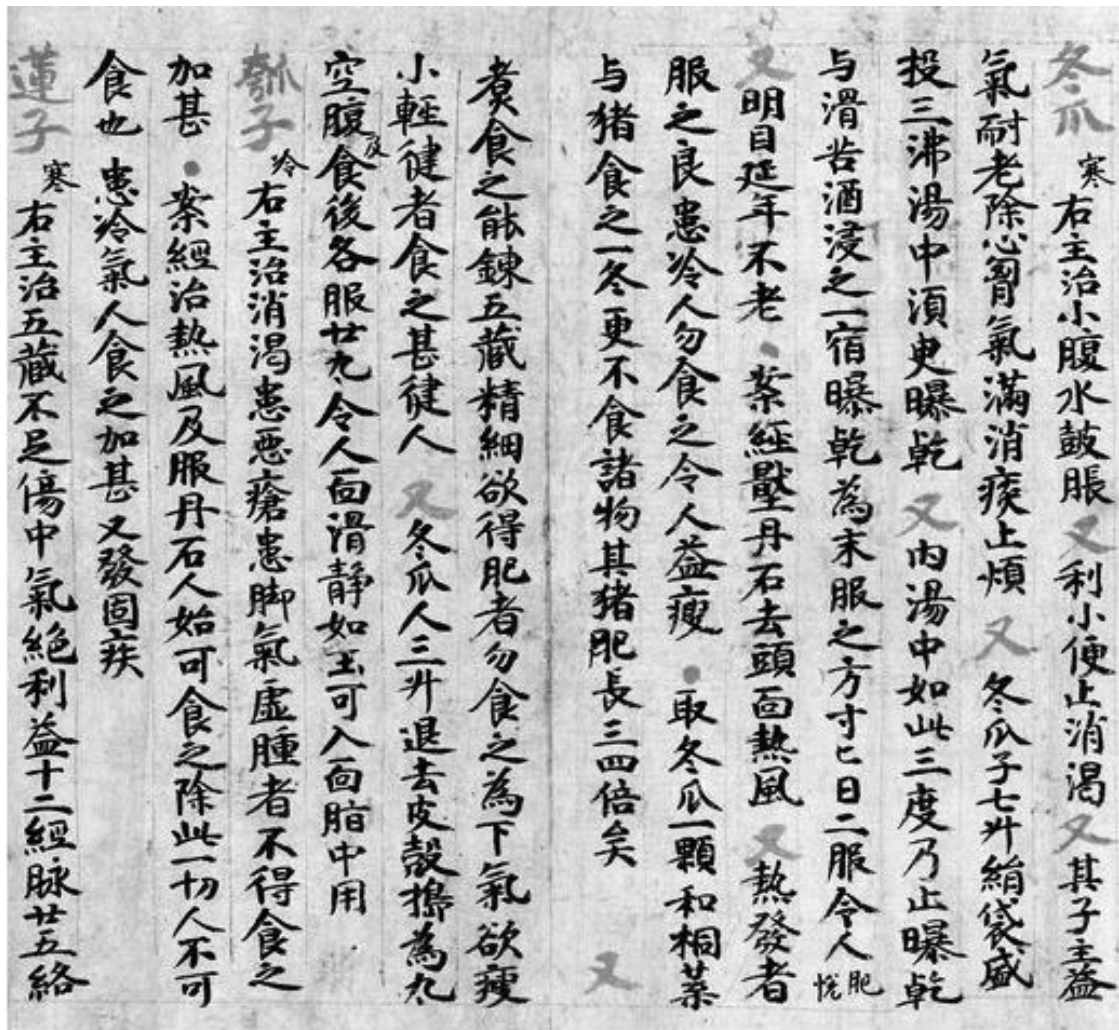 冬瓜寒右主治小腹水皷脹又利小便止消渴又其子主益
氣耐老除心胷氣滿消痰止煩又冬瓜子七升絹袋盛
投三沸湯中湏曳曝乾又内湯中如此三度乃止曝乾
与滑苦酒浸之一宿曝乾為末服之方寸匕日二服令人肥悅
又明目延年不老・案經壓丹石去頭面熱風又熱發者
服之良患冷人勿食之令人益瘦・取冬瓜一顆和桐葉
与猪食之一冬更不食諸物其猪肥長三四倍矣又
煑食之能錬五藏精細欲得肥者勿食之為下氣欲瘦
小輕健者食之甚健人又冬瓜人三升退去皮殼擣為丸
空腹及食後各服廿丸令人面滑静如玉可入面脂中用
瓠子冷右主治消渴患惡瘡患脚氣虛腫者不得食之
加甚・案經治熱風及服丹石人始可食之除此一切人不可
食也患冷氣人食之加甚又發固疾
蓮子寒右主治五藏不足傷中氣絶利益十二經脉廿五絡